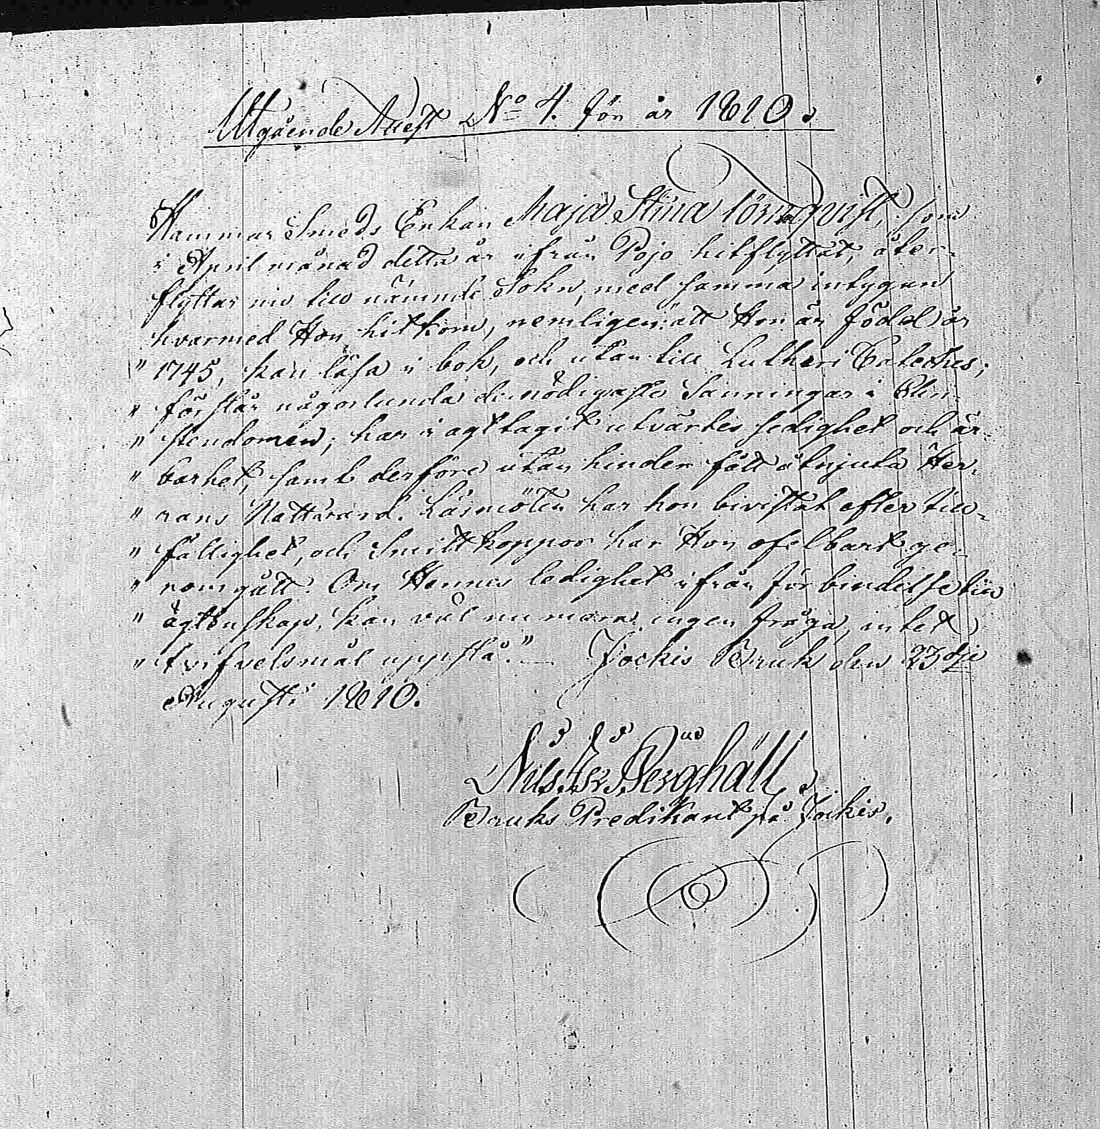 Utgående Attest No 4. för år 1810.
Hammar Smeds Enkan Maja Stina Törnqvist, som
i April månad detta år ifrån Pojo hitflyttat, åter-
flyttar nu till nämnde Sokn, med samma intygan
hvarmed Hon hitkom, nemligen: att Hon är född år
" 1745, kan läsa i bok, och utan till Lutheri Cateches;
" förstår någorlunda de nödigaste Sanningar i Chri-
" stendomen; har i agttagit utvärtes sedighet och är-
" barhet, samt derföre utan hinder fått åtnjuta Her-
" rans Nattvard. Läsmöten har hon bivistat efter till-
" fällighet, och Smittkoppor har Hon ofelbart ge-
" nomgått. Om Hennes ledighet ifrån förbindelse till
" ägtenskap, kan väl nu mera ingen fråga, intet
" tvifvelsmål uppstå." Jockis Bruk den 23dje
Augusti 1810.
Nils Berghäll
Bruks Predikant på Jockis.